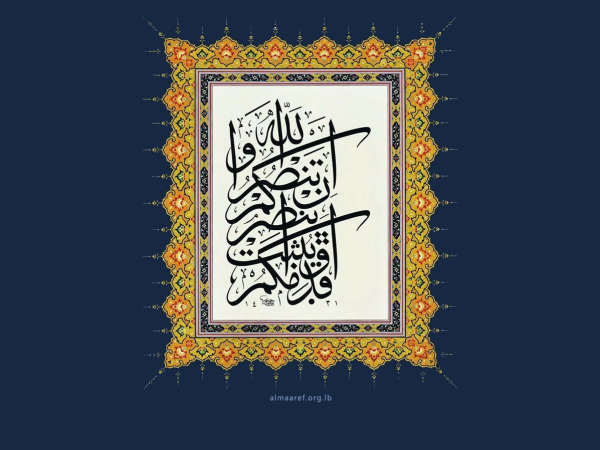 ان تنصروا الله
ينصركم
ويثبت
اقدامكم
١٤٣١
almaaref.org.lb